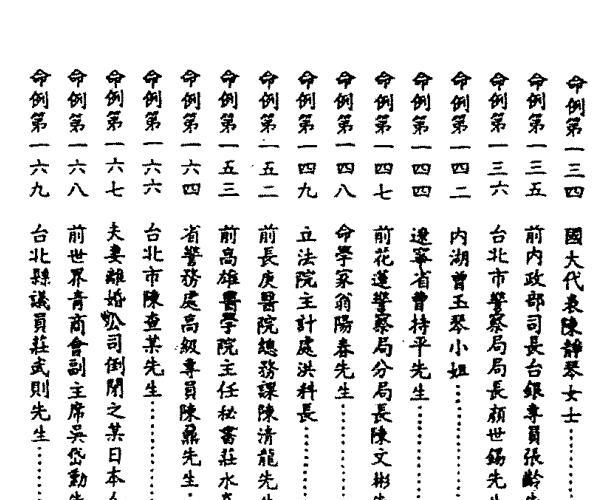 命例第一三四 國大代表陳靜琴女士………
命例第一三五 前內政部司長台銀專員張齡
命例第一三六 台北市警察局局長顏世錫先生
命例第一四二 內湖曾玉琴小姐………
命例第一四四 遼寧省曹持平先生………
命例第一四七 前花蓮警察局分局長陳文彬
命例第一四八 命學家翁陽春先生………
命例第一四九 立法院主計處洪科長………
命例第一五二 前長庚醫院總務課陳清龍先生
命例第一五三 前高雄醫學院主任秘書莊水
命例第一六四 省警務處高級專員陳鼎先生…
命例第一六六 台北市陳查某先生………
命例第一六七 夫妻離婚公司倒閉之某日本人
命例第一六八 前世界青商會副主席吳岱勳先
命例第一六九 台北縣議員莊武則先生………